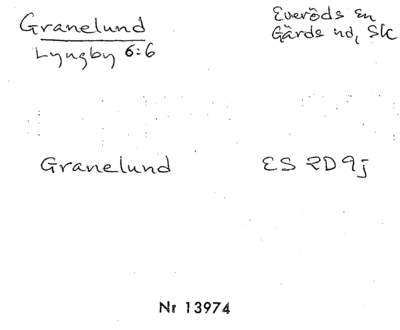 Granelund
Lyngby 6:6
Everöds sn
Gärds hd, Sk
Granelund
ES 2D9j
Nr 13974